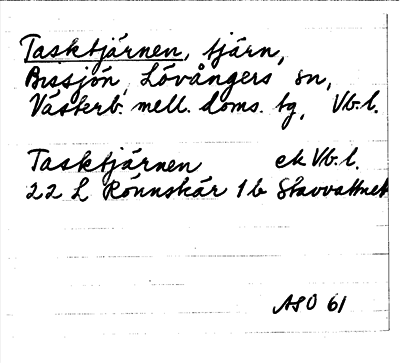 Tasktjärnen, tjärn,
Bissjön, Lövångers sn,
Västerb. mell. doms. tg, Vb. l.
Tasktjärnen ek Vb. l.
22 L Rönnskär 1 b Stavvattnet
ASO 61